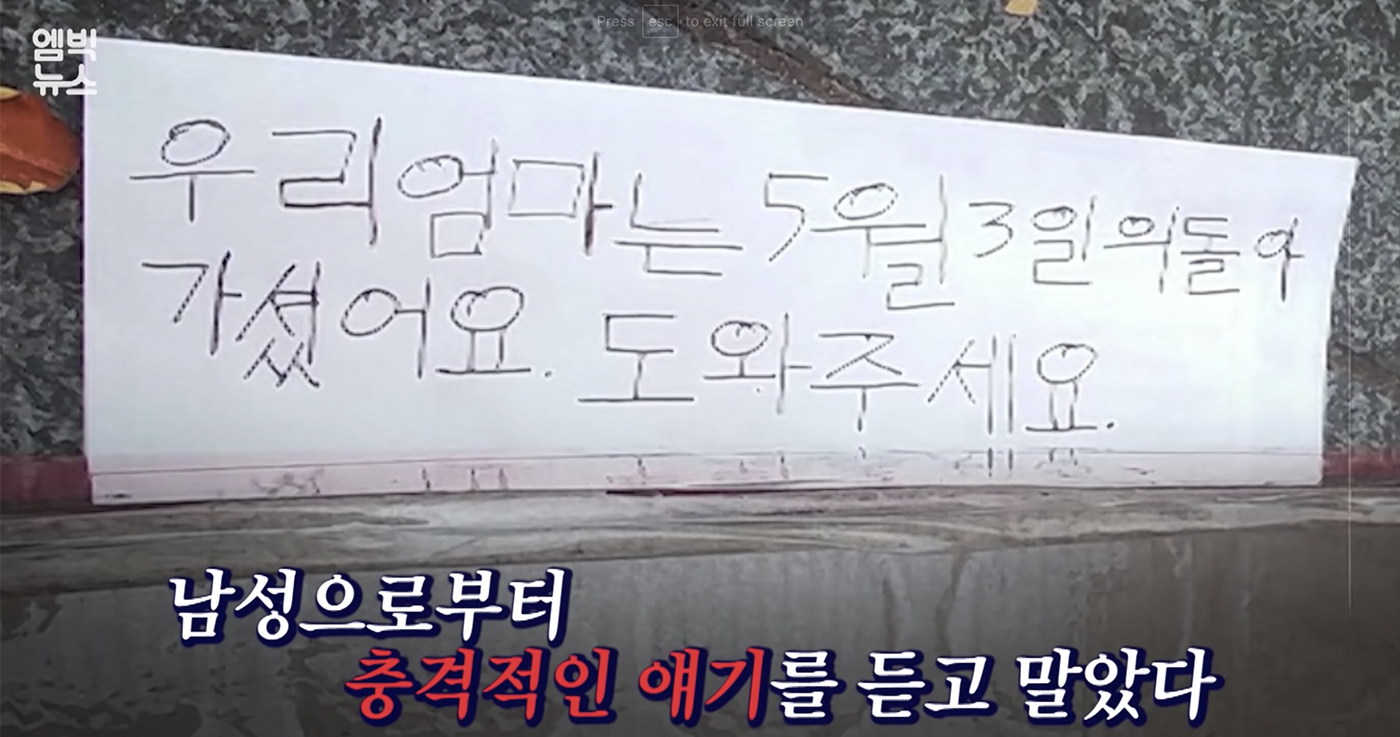 Press esc to exit full screen
엠빅
뉴스
우리엄마는 5월3일의돌아
가셨어요. 도와주세요.
남성으로부터
충격적인 얘기를 듣고 말았다